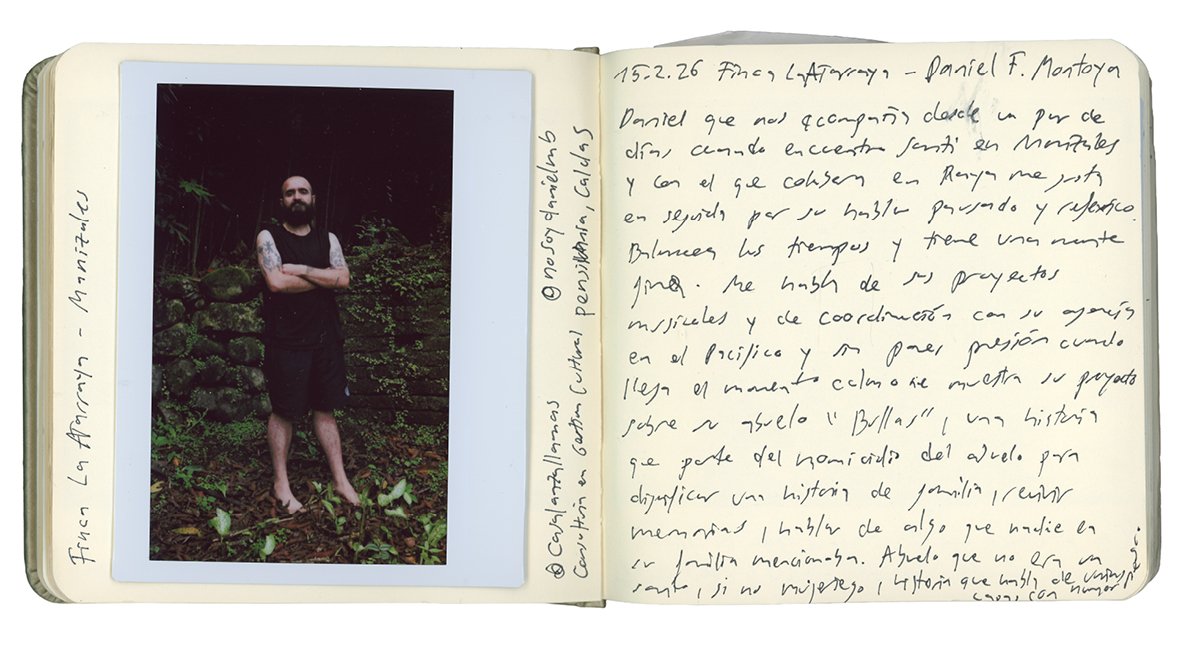 Finca La Atarraya - Manizales
@nosoydanielmb
@Casalanzallamas
Pensilvania, Caldas
Consultoría en Gestión Cultural
15.2.26 Finca La Atarraya - Daniel F. Montoya
Daniel que nos acompaña desde un par de
días cuando encuentra Santi en Manizales
y con el que colabora en me gusta
en seguida por su hablar pausado y reflexivo.
Balancea los tiempos y tiene una mente
fina. Me habla de sus proyectos
musicales y de coordinación con su agencia
en el Pacífico y sin poner presión cuando
llega el momento calmo me muestra su proyecto
sobre su abuelo "Bullas", una historia
que parte del homicidio del abuelo para
dignificar una historia de familia, revivir
memorias, hablar de algo que nadie en
su familia mencionaba. Abuelo que no era un
santo, si no mujeriego, historia que habla de varias
capas con humor